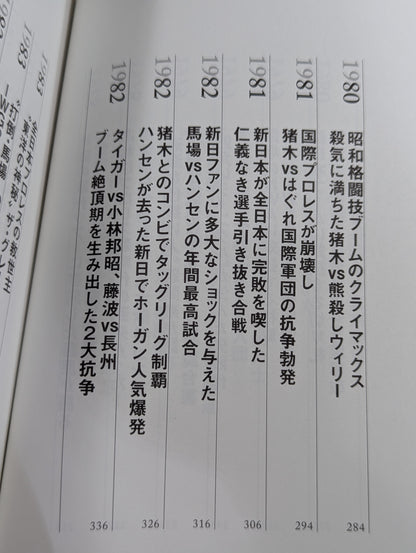 1980
昭和格闘技ブームのクライマックス
殺気に満ちた猪木vs熊殺しウィリー
284
1981
国際プロレスが崩壊し
猪木vsはぐれ国際軍団の抗争勃発
294
1981
新日本が全日本に完敗を喫した
仁義なき選手引き抜き合戦
306
1982
新日ファンに多大なショックを与えた
馬場vsハンセンの年間最高試合
316
1982
猪木とのコンビでタッグリーグ制覇
ハンセンが去った新日でホーガン人気爆発
326
1982
タイガーvs小林邦昭、藤波vs長州
ブーム絶頂期を生み出した2大抗争
336
1983
全日本プロレスの救世主
“東洋の神秘”ザ・グレ
1983
“打倒・馬場